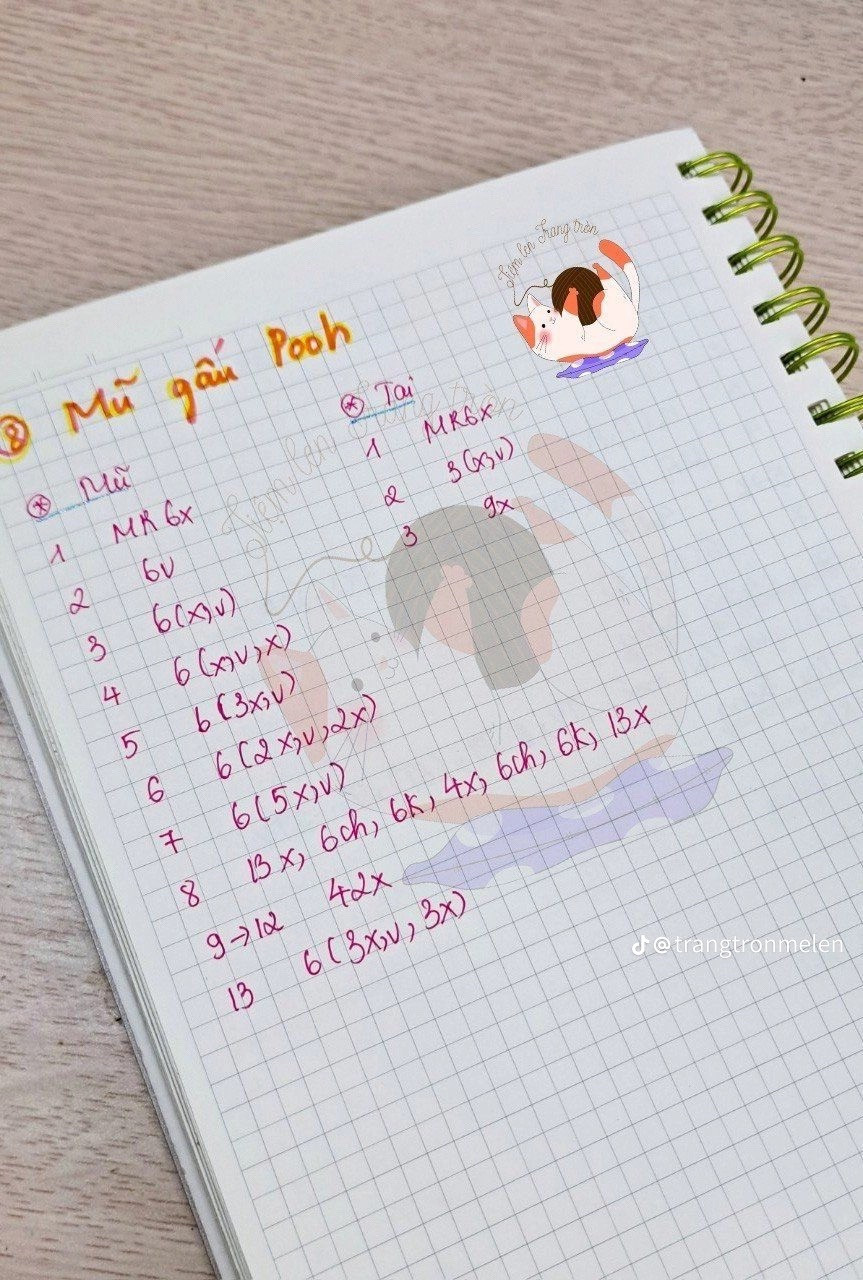 Tiệm len Trang tròn
8 Mũ gấu Pooh
* Mũ
1 MR 6x
2 6v
3 6(x,v)
4 6(x,v,x)
5 6(3x,v)
6 6(2x,v,2x)
7 6(5x,v)
8 13x, 6ch, 6k, 4x, 6ch, 6k, 13x
9→12 42x
13 6(3x,v,3x)
* Tai
1 MR6x
2 3(x,v)
3 9x
Tiệm len Trang tròn
@trangtronmelen